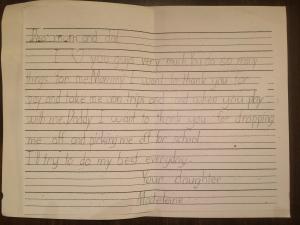 Dear mum and dad
I ♡ you guys very much. You do so many
things for me. Mommy I want to thank you for
and take me on trips and and when you play
with me. Daddy I want to thank you for dropping
me off and picking me off for school.
I'll try to do my best everyday.
Your daughter
Madeleine